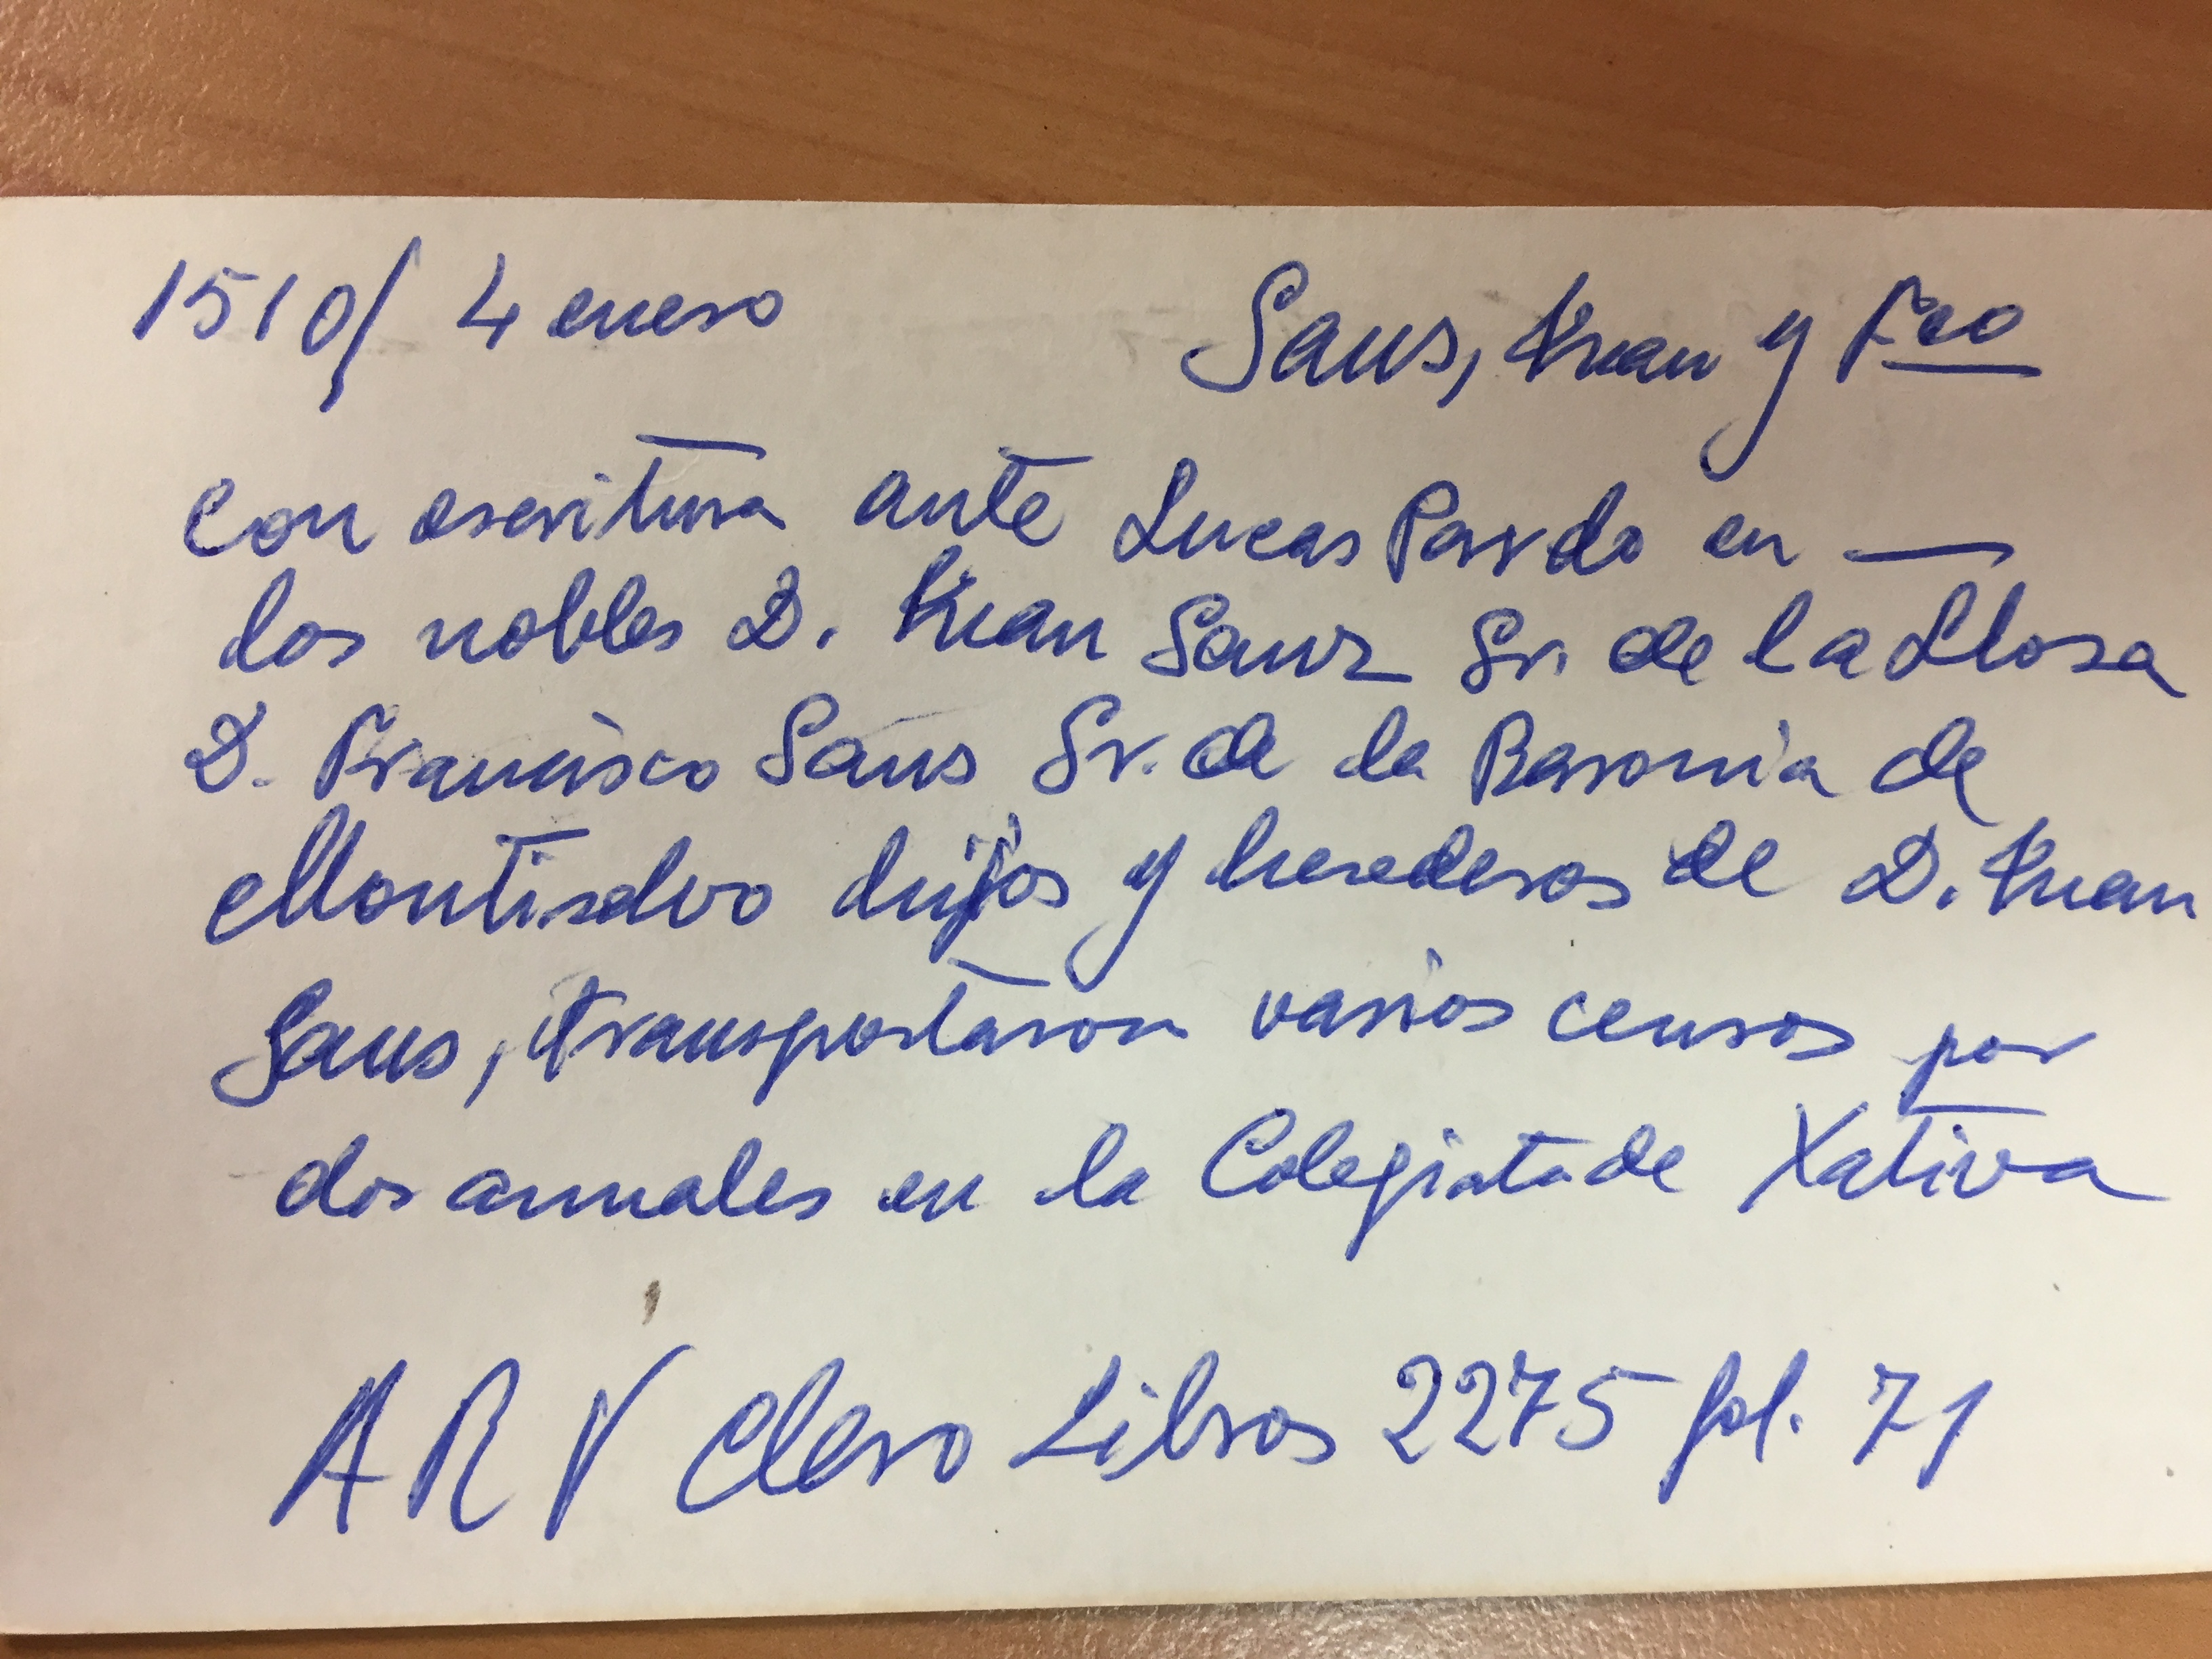 1510/ 4 enero Sans, Juan y Fco
Con escritura ante Lucas Pardo en —
los nobles D. Juan Sanz Sr. de la Llosa
D. Francisco Sans Sr. de la Baronia de
Montiselvo hijos y herederos de D. Juan
Sans, transportaron varios censos por
dos anuales en la Colegiata de Xativa
ARV Clero Libros 2275 fol. 71